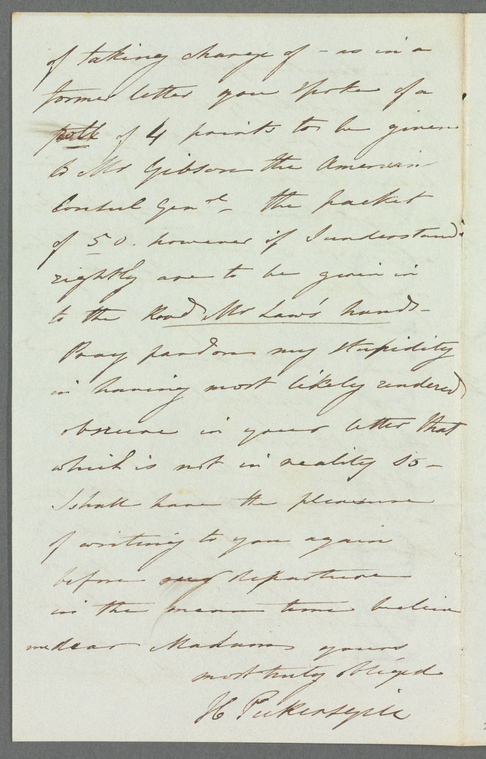 of taking charge of – as in a
former letter you spoke of a
of 4 prints to be given
to Mr Gibson the American
Consul Genl – the packet
of 50. however if I understand
rightly are to be given in
to the Revd Mr Law's hands –
Pray pardon my stupidity
in having most likely rendered
obscure in your letter that
which is not in reality so –
I shall have the pleasure
of writing to you again
before my departure
in the mean time believe
me dear Madam yours
most truly obliged
H Pickersgill